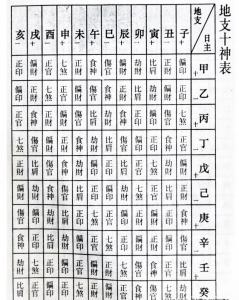 地支十神表
地支 日主 子 丑 寅 卯 辰 巳 午 未 申 酉 戌 亥
+ − + − + − + − + − + −
甲 偏印 正財 比肩 劫財 偏財 傷官 食神 正財 七煞 正官 偏財 正印
乙 正印 偏財 劫財 比肩 正財 食神 傷官 偏財 正官 七煞 正財 偏印
丙 七煞 傷官 偏印 正印 食神 劫財 比肩 傷官 偏財 正財 食神 正官
丁 正官 食神 正印 偏印 傷官 比肩 劫財 食神 正財 偏財 傷官 七煞
戊 偏財 劫財 七煞 正官 比肩 正印 偏印 劫財 食神 傷官 比肩 正財
己 正財 比肩 正官 七煞 劫財 偏印 正印 比肩 傷官 食神 劫財 偏財
庚 食神 正印 偏財 正財 偏印 正官 七煞 正印 比肩 劫財 偏印 傷官
辛 傷官 偏印 正財 偏財 正印 七煞 正官 偏印 劫財 比肩 正印 食神
壬 比肩 正官 食神 傷官 七煞 正財 偏財 正官 偏印 正印 七煞 劫財
癸 劫財 七煞 傷官 食神 正官 偏財 正財 七煞 正印 偏印 正官 比肩